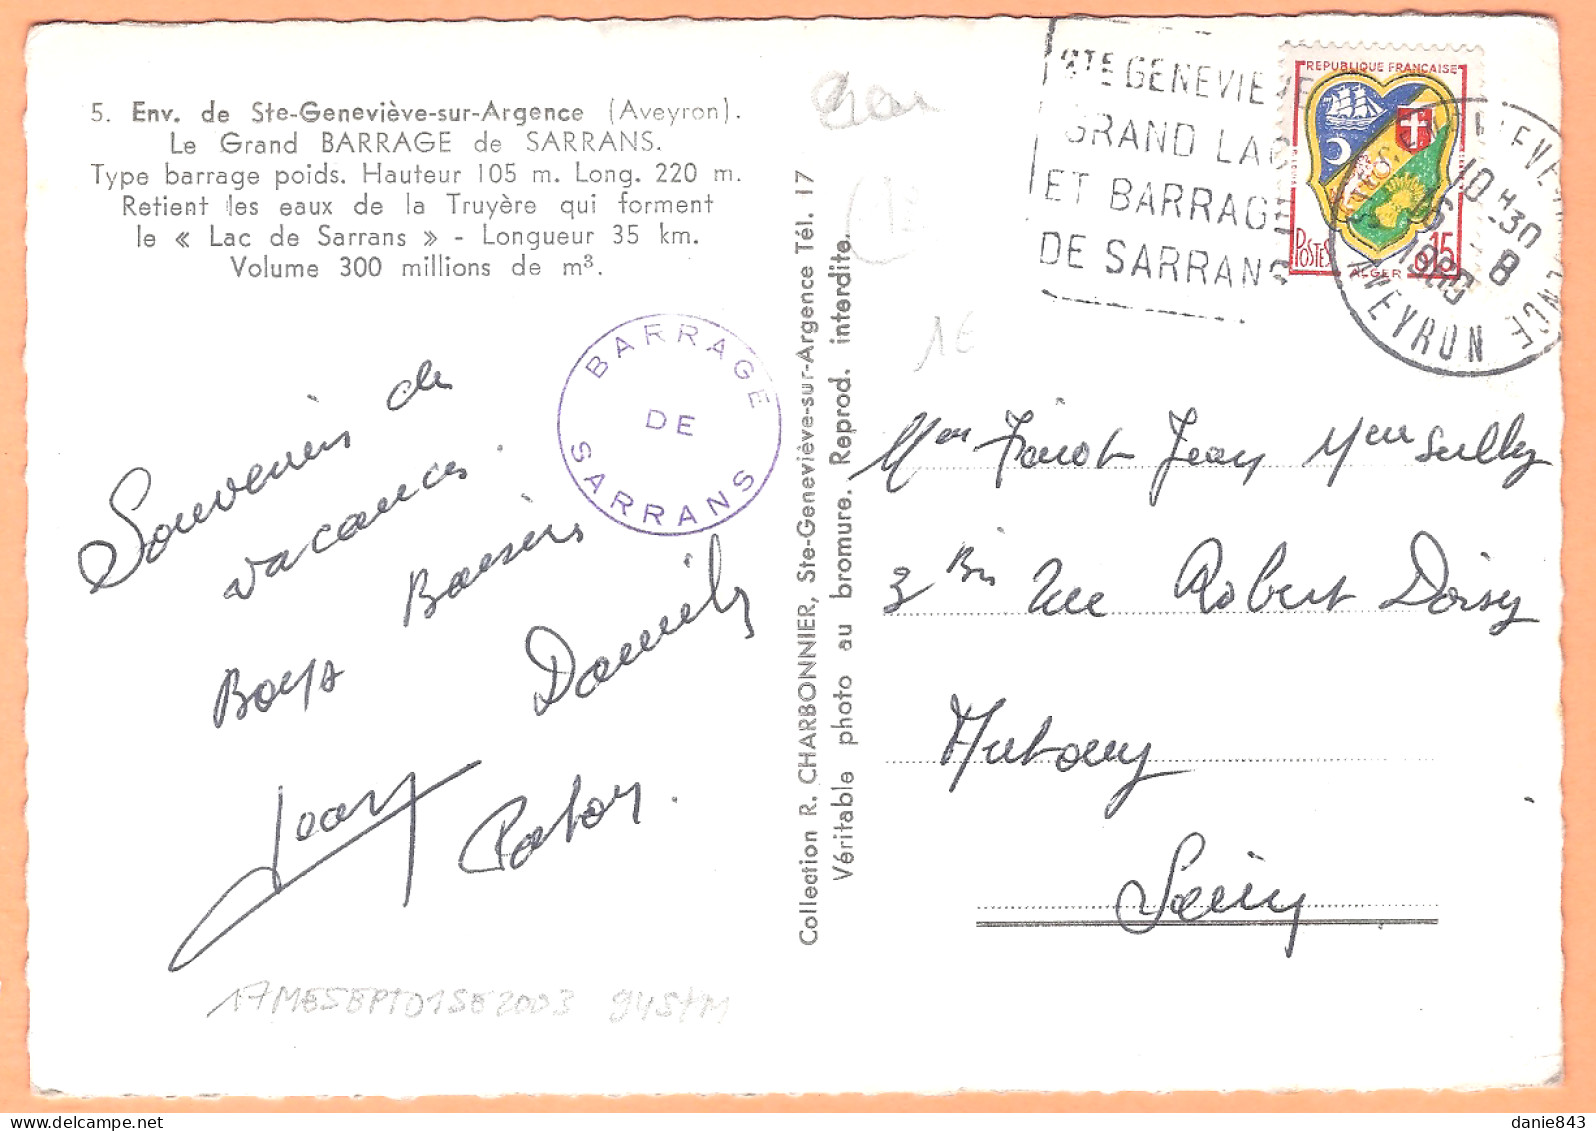 5. Env. de Ste-Geneviève-sur-Argence (Aveyron).
Le Grand BARRAGE de SARRANS.
Type barrage poids. Hauteur 105 m. Long. 220 m.
Retient les eaux de la Truyère qui forment
le « Lac de Sarrans » - Longueur 35 km.
Volume 300 millions de m³.
BARRAGE
DE
SARRANS
Souvenirs de
vacances.
Bons Baisers
Jean
Collection R. CHARBONNIER, Ste-Geneviève-sur-Argence Tél. 17
Véritable photo au bromure. Reprod. interdite.
STE GENEVIEVE
GRAND LAC
ET BARRAGE
DE SARRANS
REPUBLIQUE FRANÇAISE
POSTES
ALGER
0,15
10 H 30
16 - 8
1960
AVEYRON
1€
Jean
3 Bis rue Robert Doisy
Antony
Seine
17MESEPT01SE2003 945/11
danie843